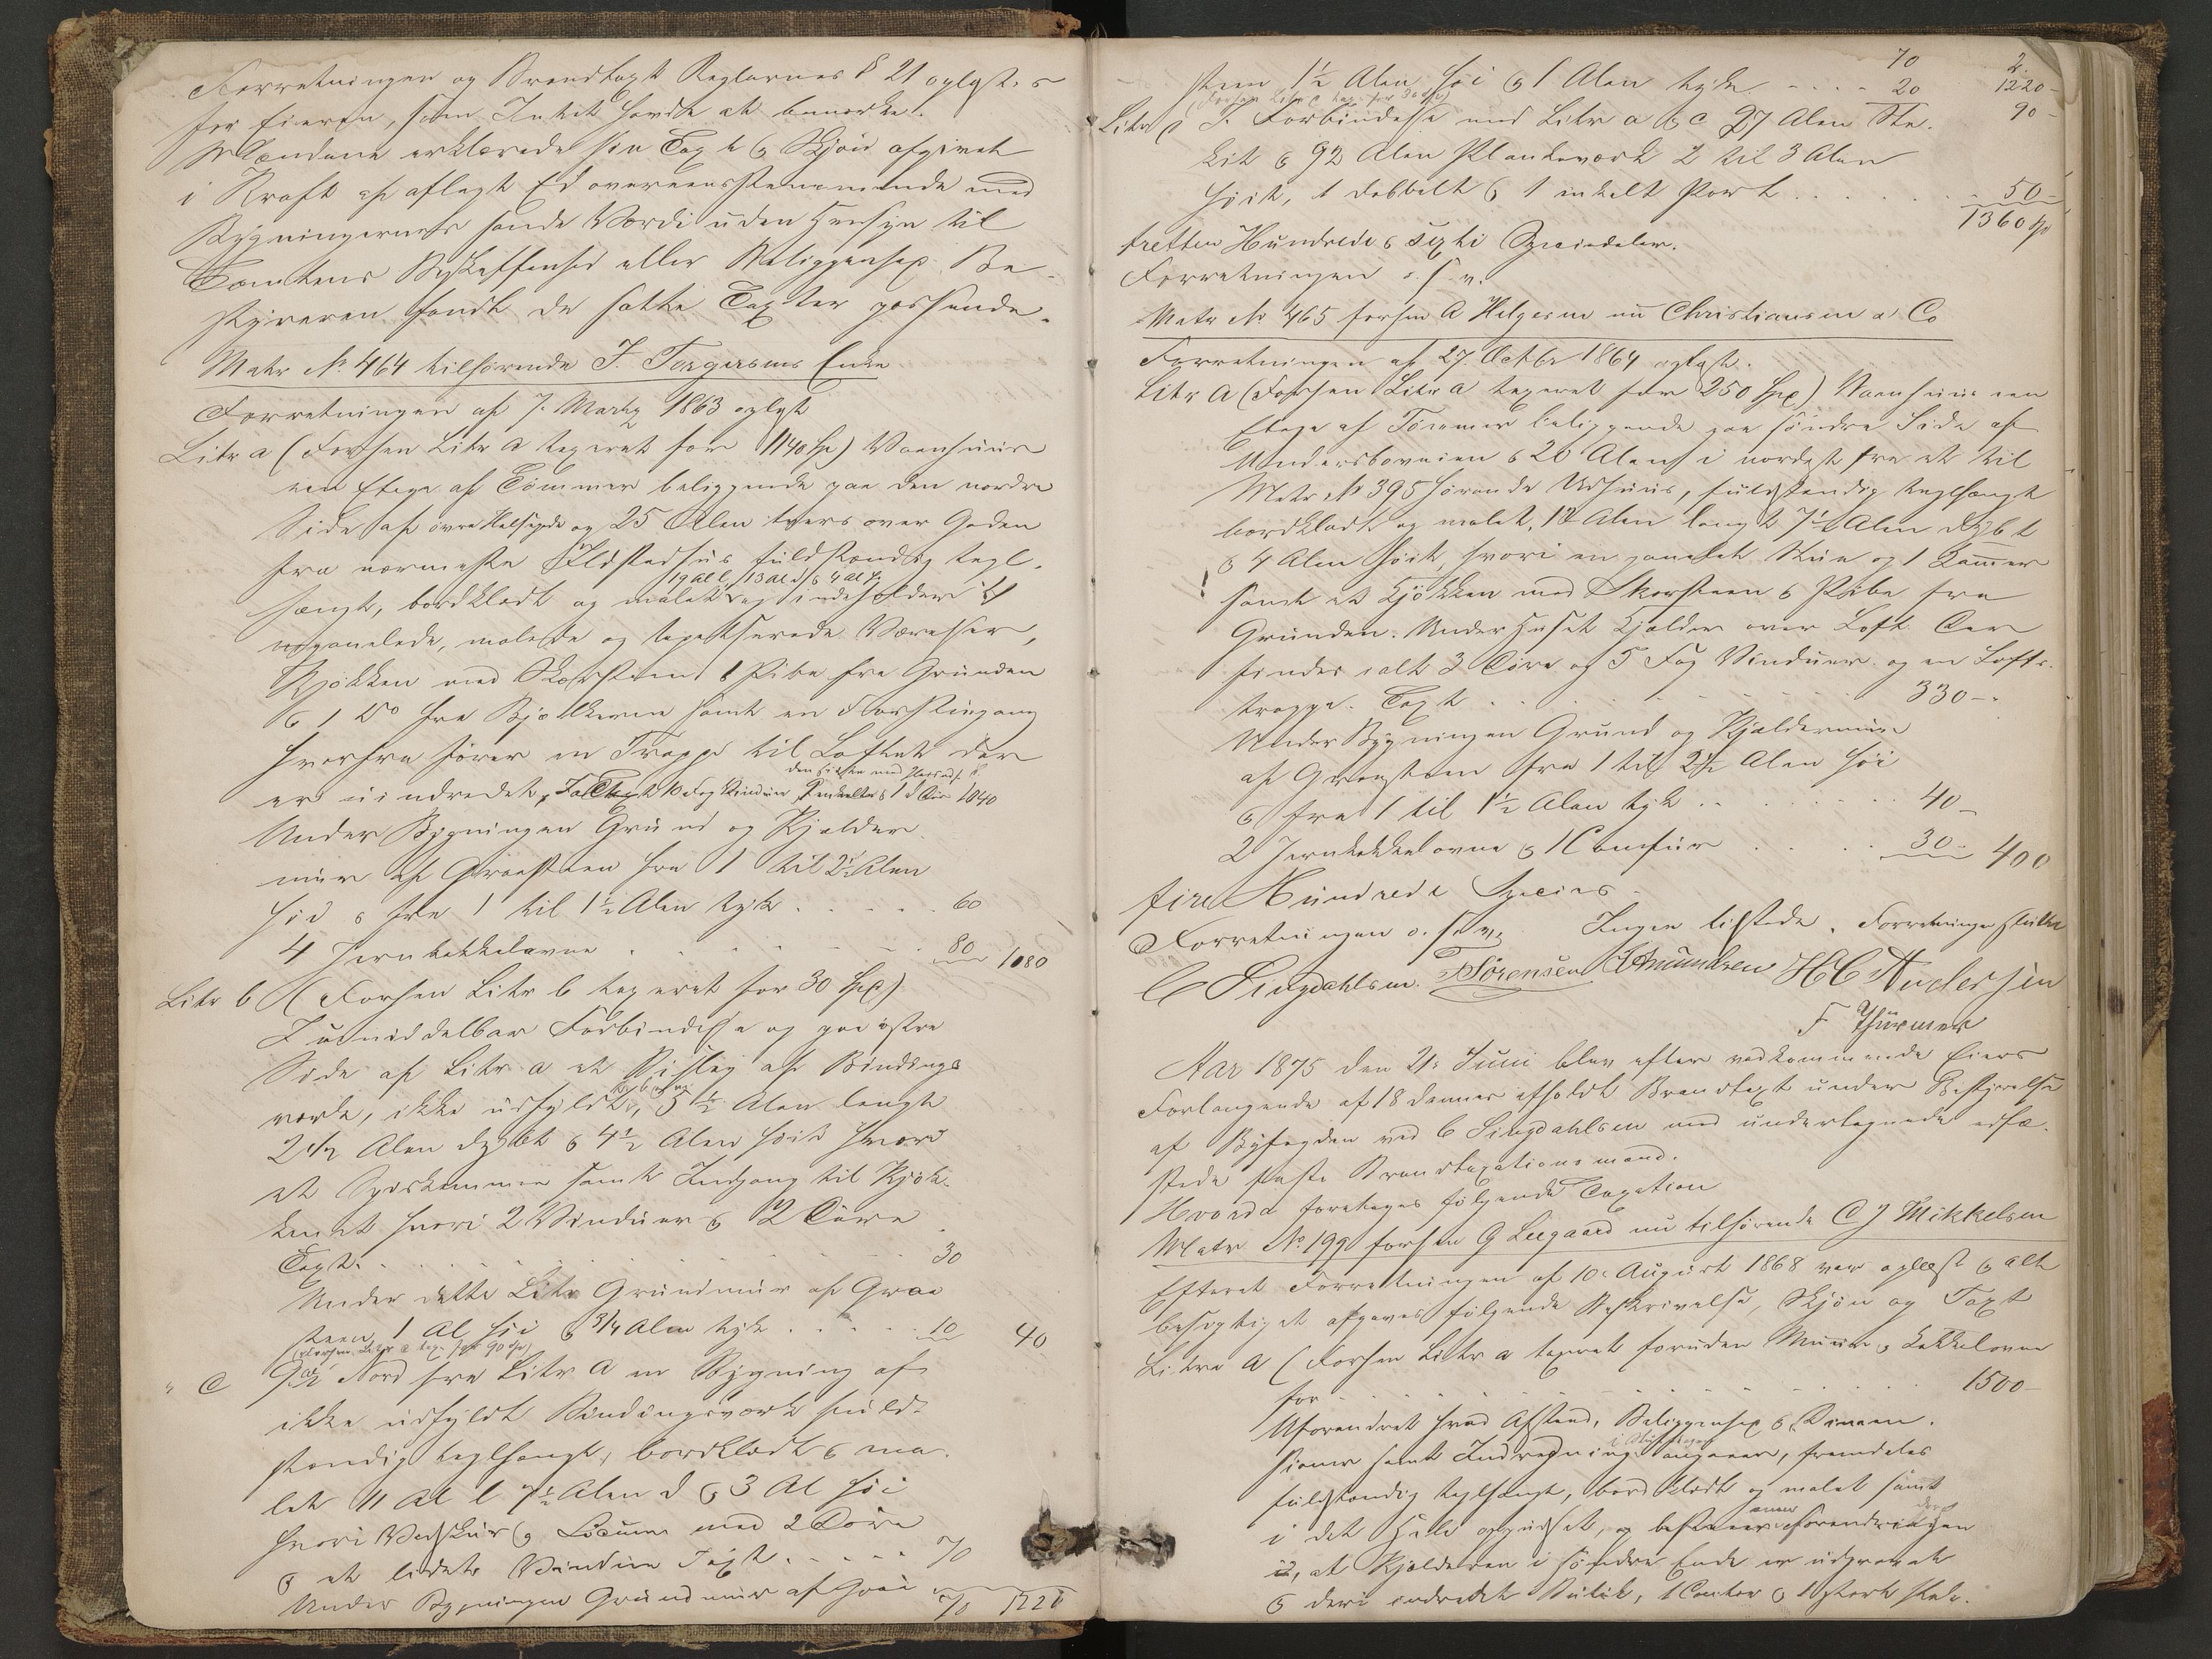 Forretningen og Brandtaxt Reglernes § 21 oplæst
for Eieren, som Intet havde at bemærke.
Mændene erklærede sin Taxt & Skjøn afgivet
i Kraft af aflagt Ed overeensstemmende med
Bygningernes sande Værdi uden Hensyn til
Tomtens Beskaffenhed eller Beliggenhed. Be-
styreren fandt de satte Taxter passende.
Matr No 464 tilhørende J. Torgersens Enke
Forretningen af 7. Marts 1863 oplæst
Litr a (Forhen Litr a taxeret for 1140 Spd) Vaanhuus
een Etage af Tømmer beliggende paa den nordre
Side af øvre og 25 Alen tvers over Gaden
fra nærmeste Ildstedhus fuldstændig tegl-
19 al l, 13 al d & 4 al h
hængt, bordklædt og malet og indeholder 4
panelede, malede og tapetserede Værelser,
Kjøkken med Skorsteen & Pibe fra Grunden
& 1 do fra Bjelkerne samt en Forstugang
hvorfra fører en Trappe til Loftet der
er uindredet, Taxt 10 Fag Vinduer 1040
Under Bygningen Grund og Kjælder
muur af Graasteen fra 1 til 2½ Alen
høi & fra 1 til 1½ Alen tyk . . . . . 60
4 Jernkakkelovne . . . . . 80 1080
Litr b (Forhen Litr b taxeret for 30 Spd)
I umiddelbar Forbindelse og paa østre
Side af Litr a et Bislag af Bindings
værk, ikke udfyldt, 5½ Alen langt
2½ Alen dybt & 4½ Alen høit hvori
et Spiskammer samt Indgang til Kjøk-
kenet hvori 2 Vinduer & 2 Døre
Taxt . . . . . 30
Under dette Litr Grundmuur af Graa
steen 1 Al høi & ¾ Alen tyk . . . . . 10 40
(Forhen Litr c tax. for 90 Spd)
" c 9½ Nord fra Litr A en Bygning af
ikke udfyldt Bindingsværk fuld-
stændig teglhængt, bordklædt & ma-
let 11 Al l 7½ Alen d & 3 Al høi
hvori Vedskur & Locum med 2 Døre
& et lidet Vindue Taxt . . . . . 70
Under Bygningen Grundmuur af Graa 70 1220
70 2.
steen 1½ Alen høi & 1 Alen tyk . . . . 20 1220-
90-
Litr d I Forbindelse med Litr a & c 27 Alen Sta-
kit & 92 Alen Plankeværk 2 til 3 Alen
høit, 1 dobbelt & 1 enkelt Port . . . . . 50-
1360 Sp
tretten Hundrede & sexti Speciedaler.
Forretningen o. s. v.
Matr No 465 forhen A Helgesen nu Christiansen & Co
Forretningen af 27. Octbr 1864 oplæst.
Litr A (Forhen Litr a taxeret for 250 Spd) Vaanhuus een
Etage af Tømmer beliggende paa søndre Side af
& 20 Alen i nordost fra et til
Matr No 395 hørende Udhuus, fuldstændig teglhængt
bordklædt og malet, 12 Alen langt 7½ Alen dybt
& 4 Alen høit, hvori en panelet Stue og 1 Kammer
samt et Kjøkken med Skorsteen & Pibe fra
Grunden. Under Huset Kjælder over Loft. Der
findes ialt 3 Døre og 5 Fag Vinduer og en Lofts-
trappe. Taxt . . . . . 330-
Under Bygningen Grund og Kjældermuur
af Graasteen fra 1 til 2½ Alen høi
& fra 1 til 1½ Alen tyk . . . . . 40-
2 Jernkakkelovne & 1 Comfur . . . . . 30- 400
fire Hundrede Species.
Forretningen o. s. v. Ingen tilstede. Forretningen sluttet
C Lingdahlsen. Sørensen Amundsen H C Andersen
F Thürmer
Aar 1875 den 21. Juni blev efter vedkommende Eiers
Forlangende af 18 dennes afholdt Brandtaxt under Bestyrelse
af Byfogden ved C Lingdahlsen med undertegnede edfæ-
stede faste Brandtaxationsmænd.
Hvorda foretoges følgende Taxation
Matr No 199 forhen G Leegaard nu tilhørende C J Mikkelsen
Efterat Forretningen af 10. August 1868 var oplæst & alt
besigtiget afgaves følgende Beskrivelse, Skjøn og Taxt
Litra A (Forhen Litr a taxeret foruden Muur & Kakkelovne
for . . . . . 1500-
Uforandret hvad Afstand, Beliggenhed & Dimen-
sioner samt Indredning angaaer, fremdeles
fuldstændig teglhængt, bordklædt og malet samt
i det Hele oppudset, og bestaaer Forandringen
i, at Kjælderen i søndre Ende er udgravet
& deri indredet Butik, 1 Contor & 1